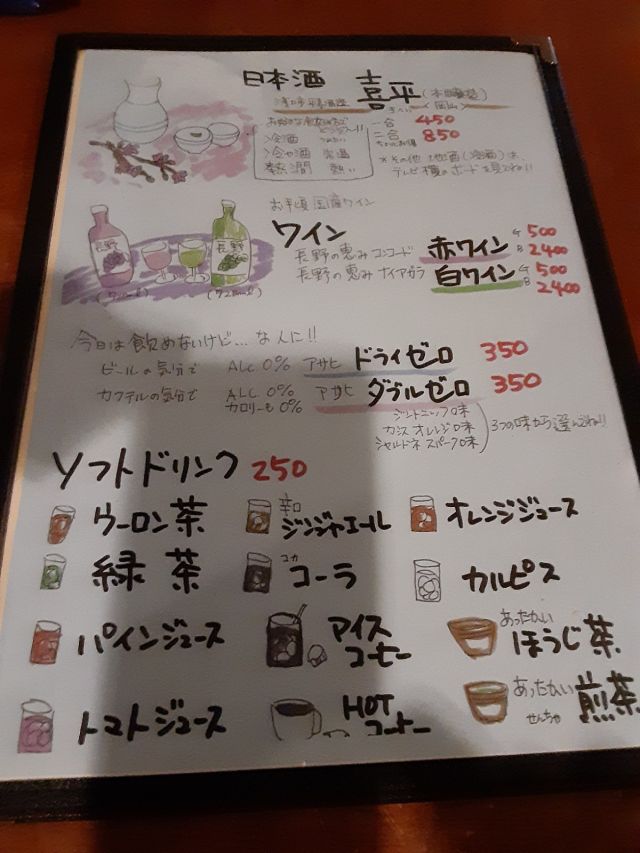 日本酒 喜平 (本醸造)
きへい <岡山>
お好みの飲み方で
冷酒 つめたい
冷や酒 常温
熱燗 熱い
一合 450
二合 850
*その他 地酒(冷酒)は、
テレビ横のボードを見てね!!
お手頃国産ワイン
ワイン
長野の恵み コンコード 赤ワイン G 500
B 2400
長野の恵み ナイアガラ 白ワイン G 500
B 2400
長野
長野
今日は飲めないけど…な人に!!
ビールの気分で ALC 0% アサヒ ドライゼロ 350
カクテルの気分で ALC 0% アサヒ ダブルゼロ 350
カロリーも0%
ジントニック味
カシスオレンジ味
シャルドネスパークリング味
3つの味から選んでね!!
ソフトドリンク 250
ウーロン茶
辛口 ジンジャエール
オレンジジュース
緑茶
コカ コーラ
カルピス
パインジュース
アイスコーヒー
あったかい ほうじ茶
トマトジュース
HOT コーヒー
あったかい 煎茶
せんちゃ